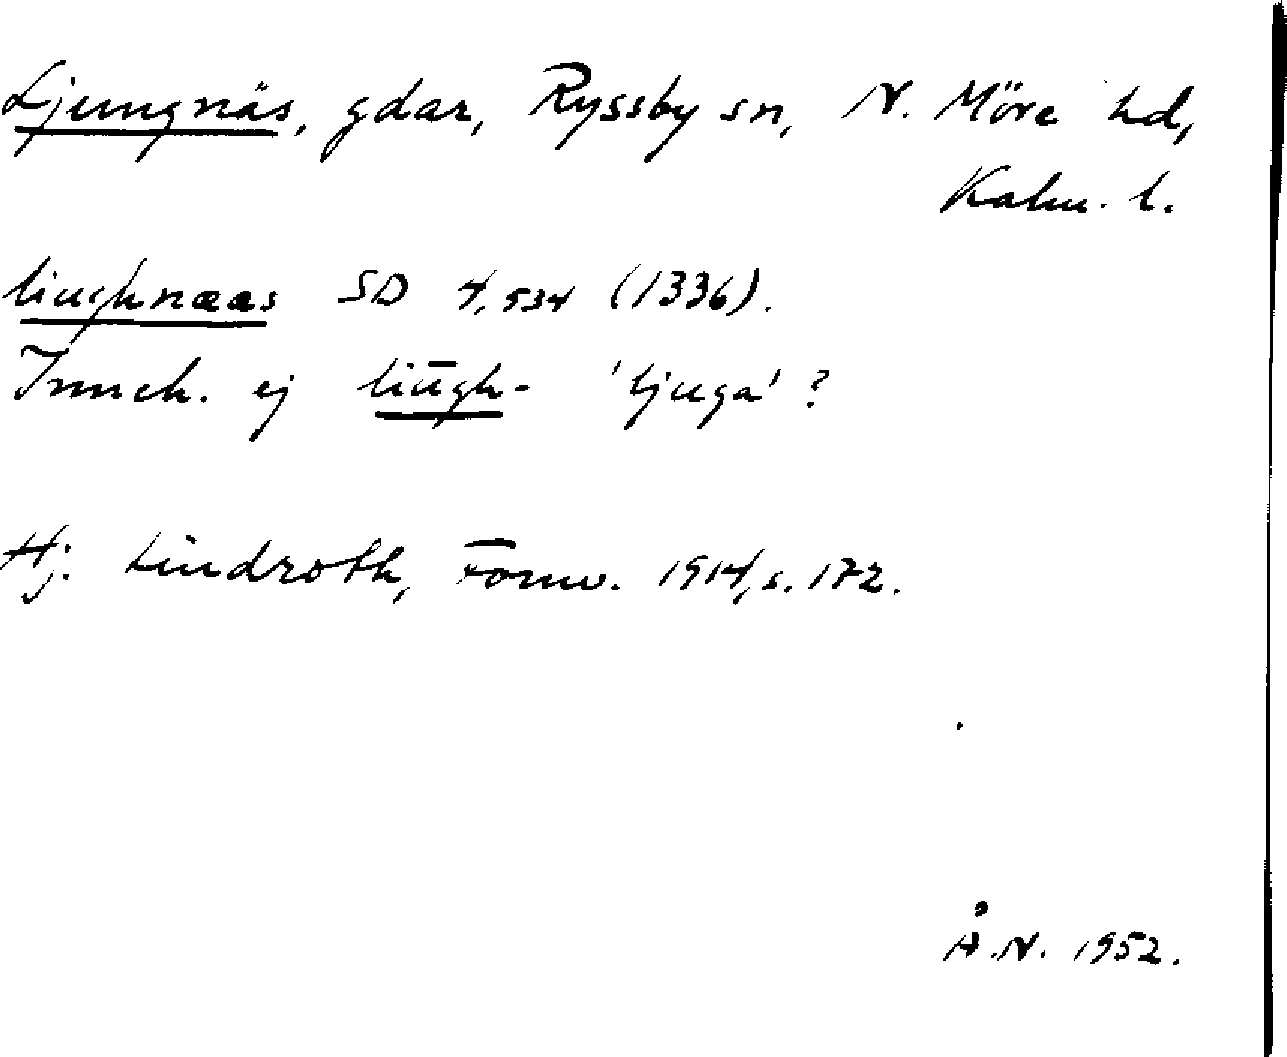 Ljungnäs, gdar, Ryssby sn, N. Möre hd,
Kalm. l.
liughnæas SD 4,534 (1336).
Inneh. ej liūgh- 'ljuga'?
Hj. Lindroth, Fornv. 1914, s. 172.
Å.N. 1952.